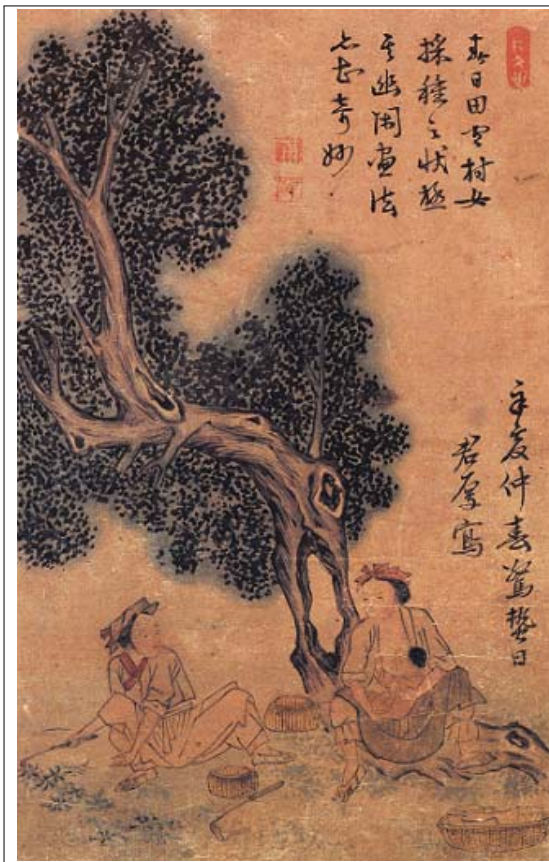 春日田 村女
採種之狀極
其幽閑畫法
甚奇妙
辛亥仲春驚蟄日
君厚寫